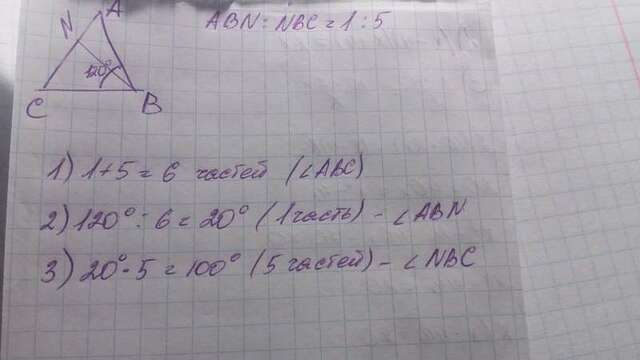 ABN : NBC = 1 : 5
A
N
120°
C
B
1) 1+5 = 6 частей (∠ABC)
2) 120° : 6 = 20° (1 часть) - ∠ABN
3) 20° · 5 = 100° (5 частей) - ∠NBC